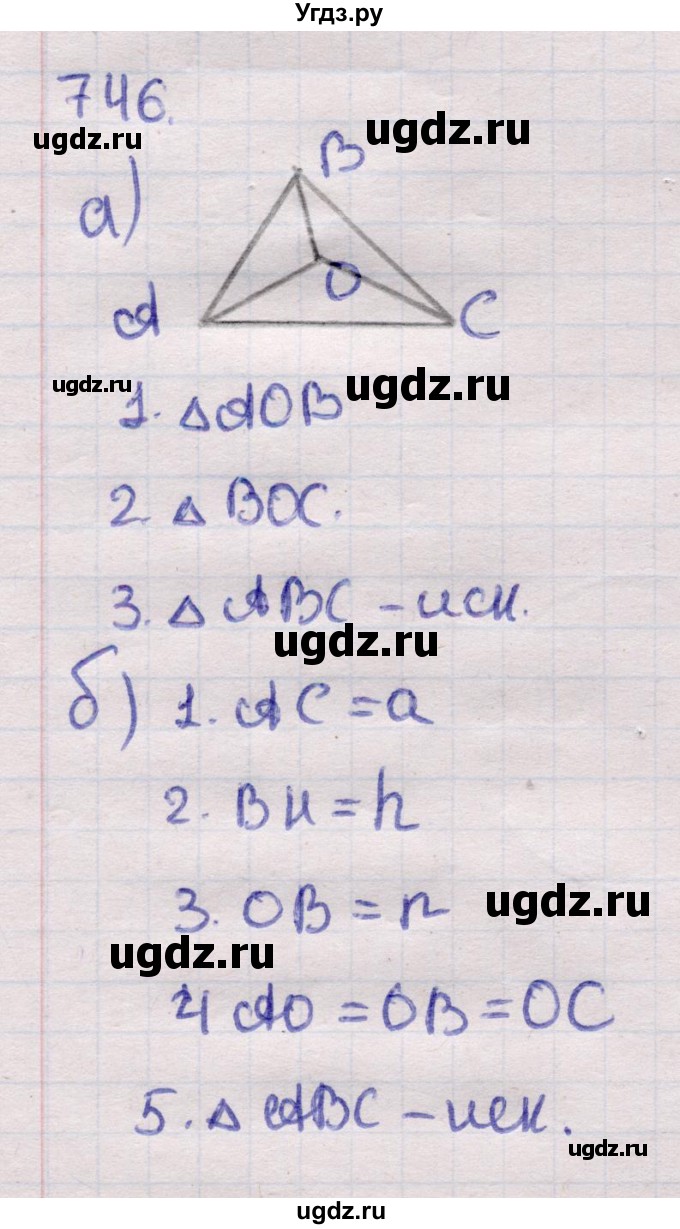 Угдз.ру
746.
ugdz.ru
ugdz.ru
а)
B
O
A
C
ugdz.ru
ugdz.ru
1. △AOB
2. △ BOC.
3. △ ABC - иск.
ugdz.ru
б) 1. AC = a
2. BH = h
3. OB = r
ugdz.ru
ugdz.ru
4 AO = OB = OC
5. △ ABC - иск.
ugdz.ru
ugdz.ru